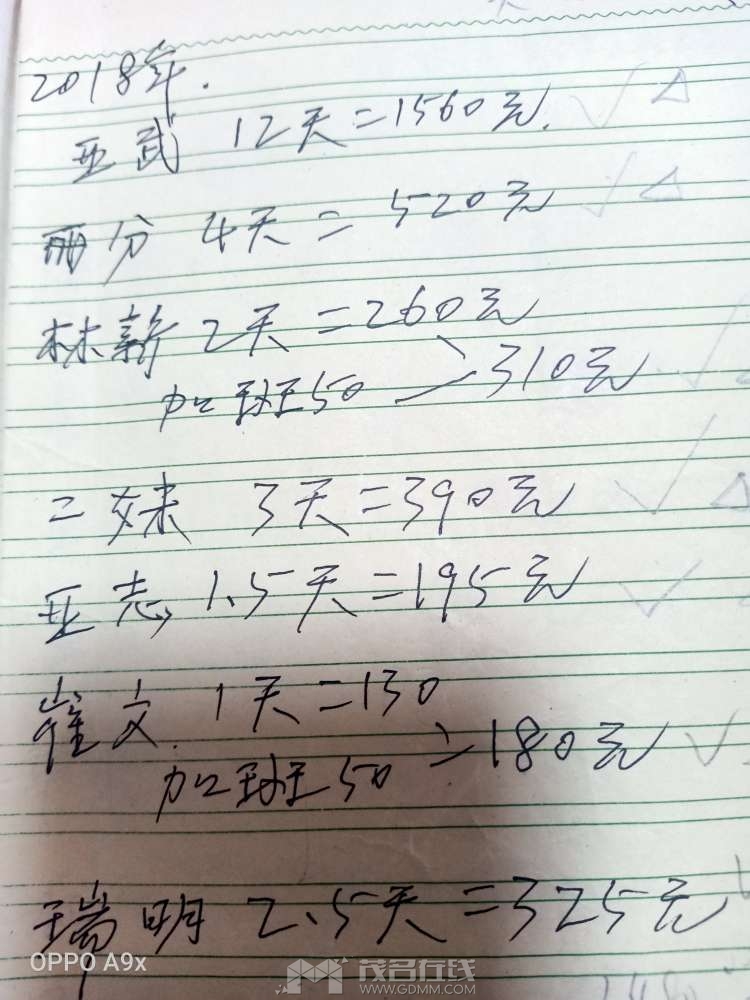 2018年.
亚武 12天=1560元.
丽分 4天=520元
林新 2天=260元
加班50 >310元
二妹 3天=390元
亚志 1.5天=195元
崔文. 1天=130
加班50 >180元
瑞明 2.5天=325元
OPPO A9x
茂名在线
WWW.GDMM.COM